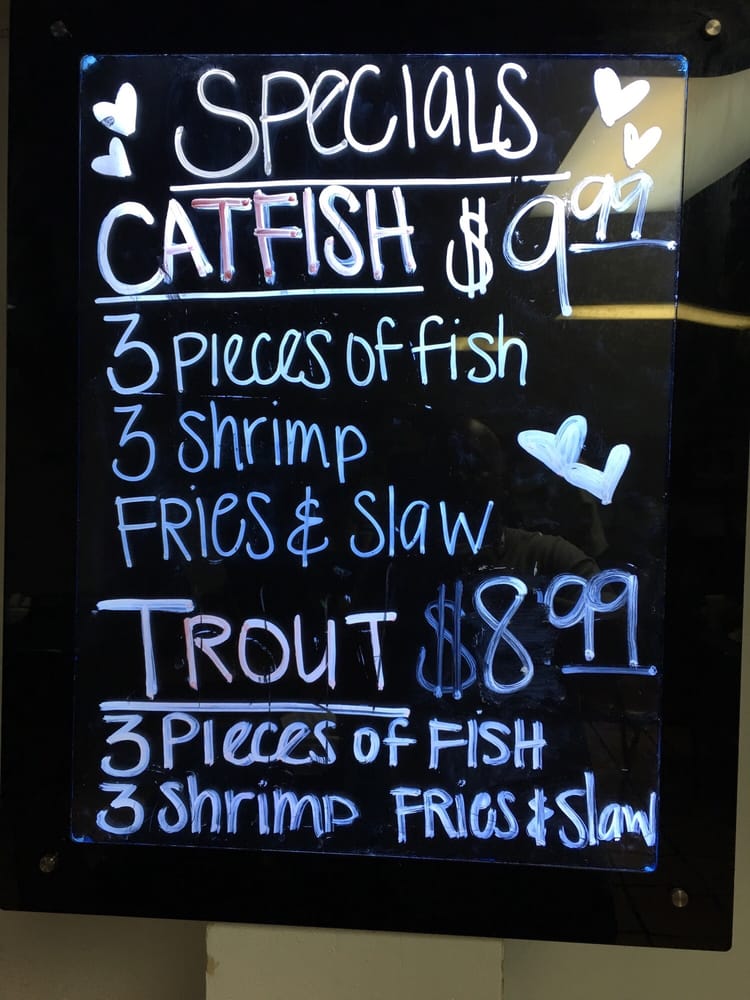 Specials
CATFISH $9.99
3 pieces of fish
3 shrimp
FRIES & Slaw
TROUT $8.99
3 Pieces of FISH
3 Shrimp FRIES & Slaw